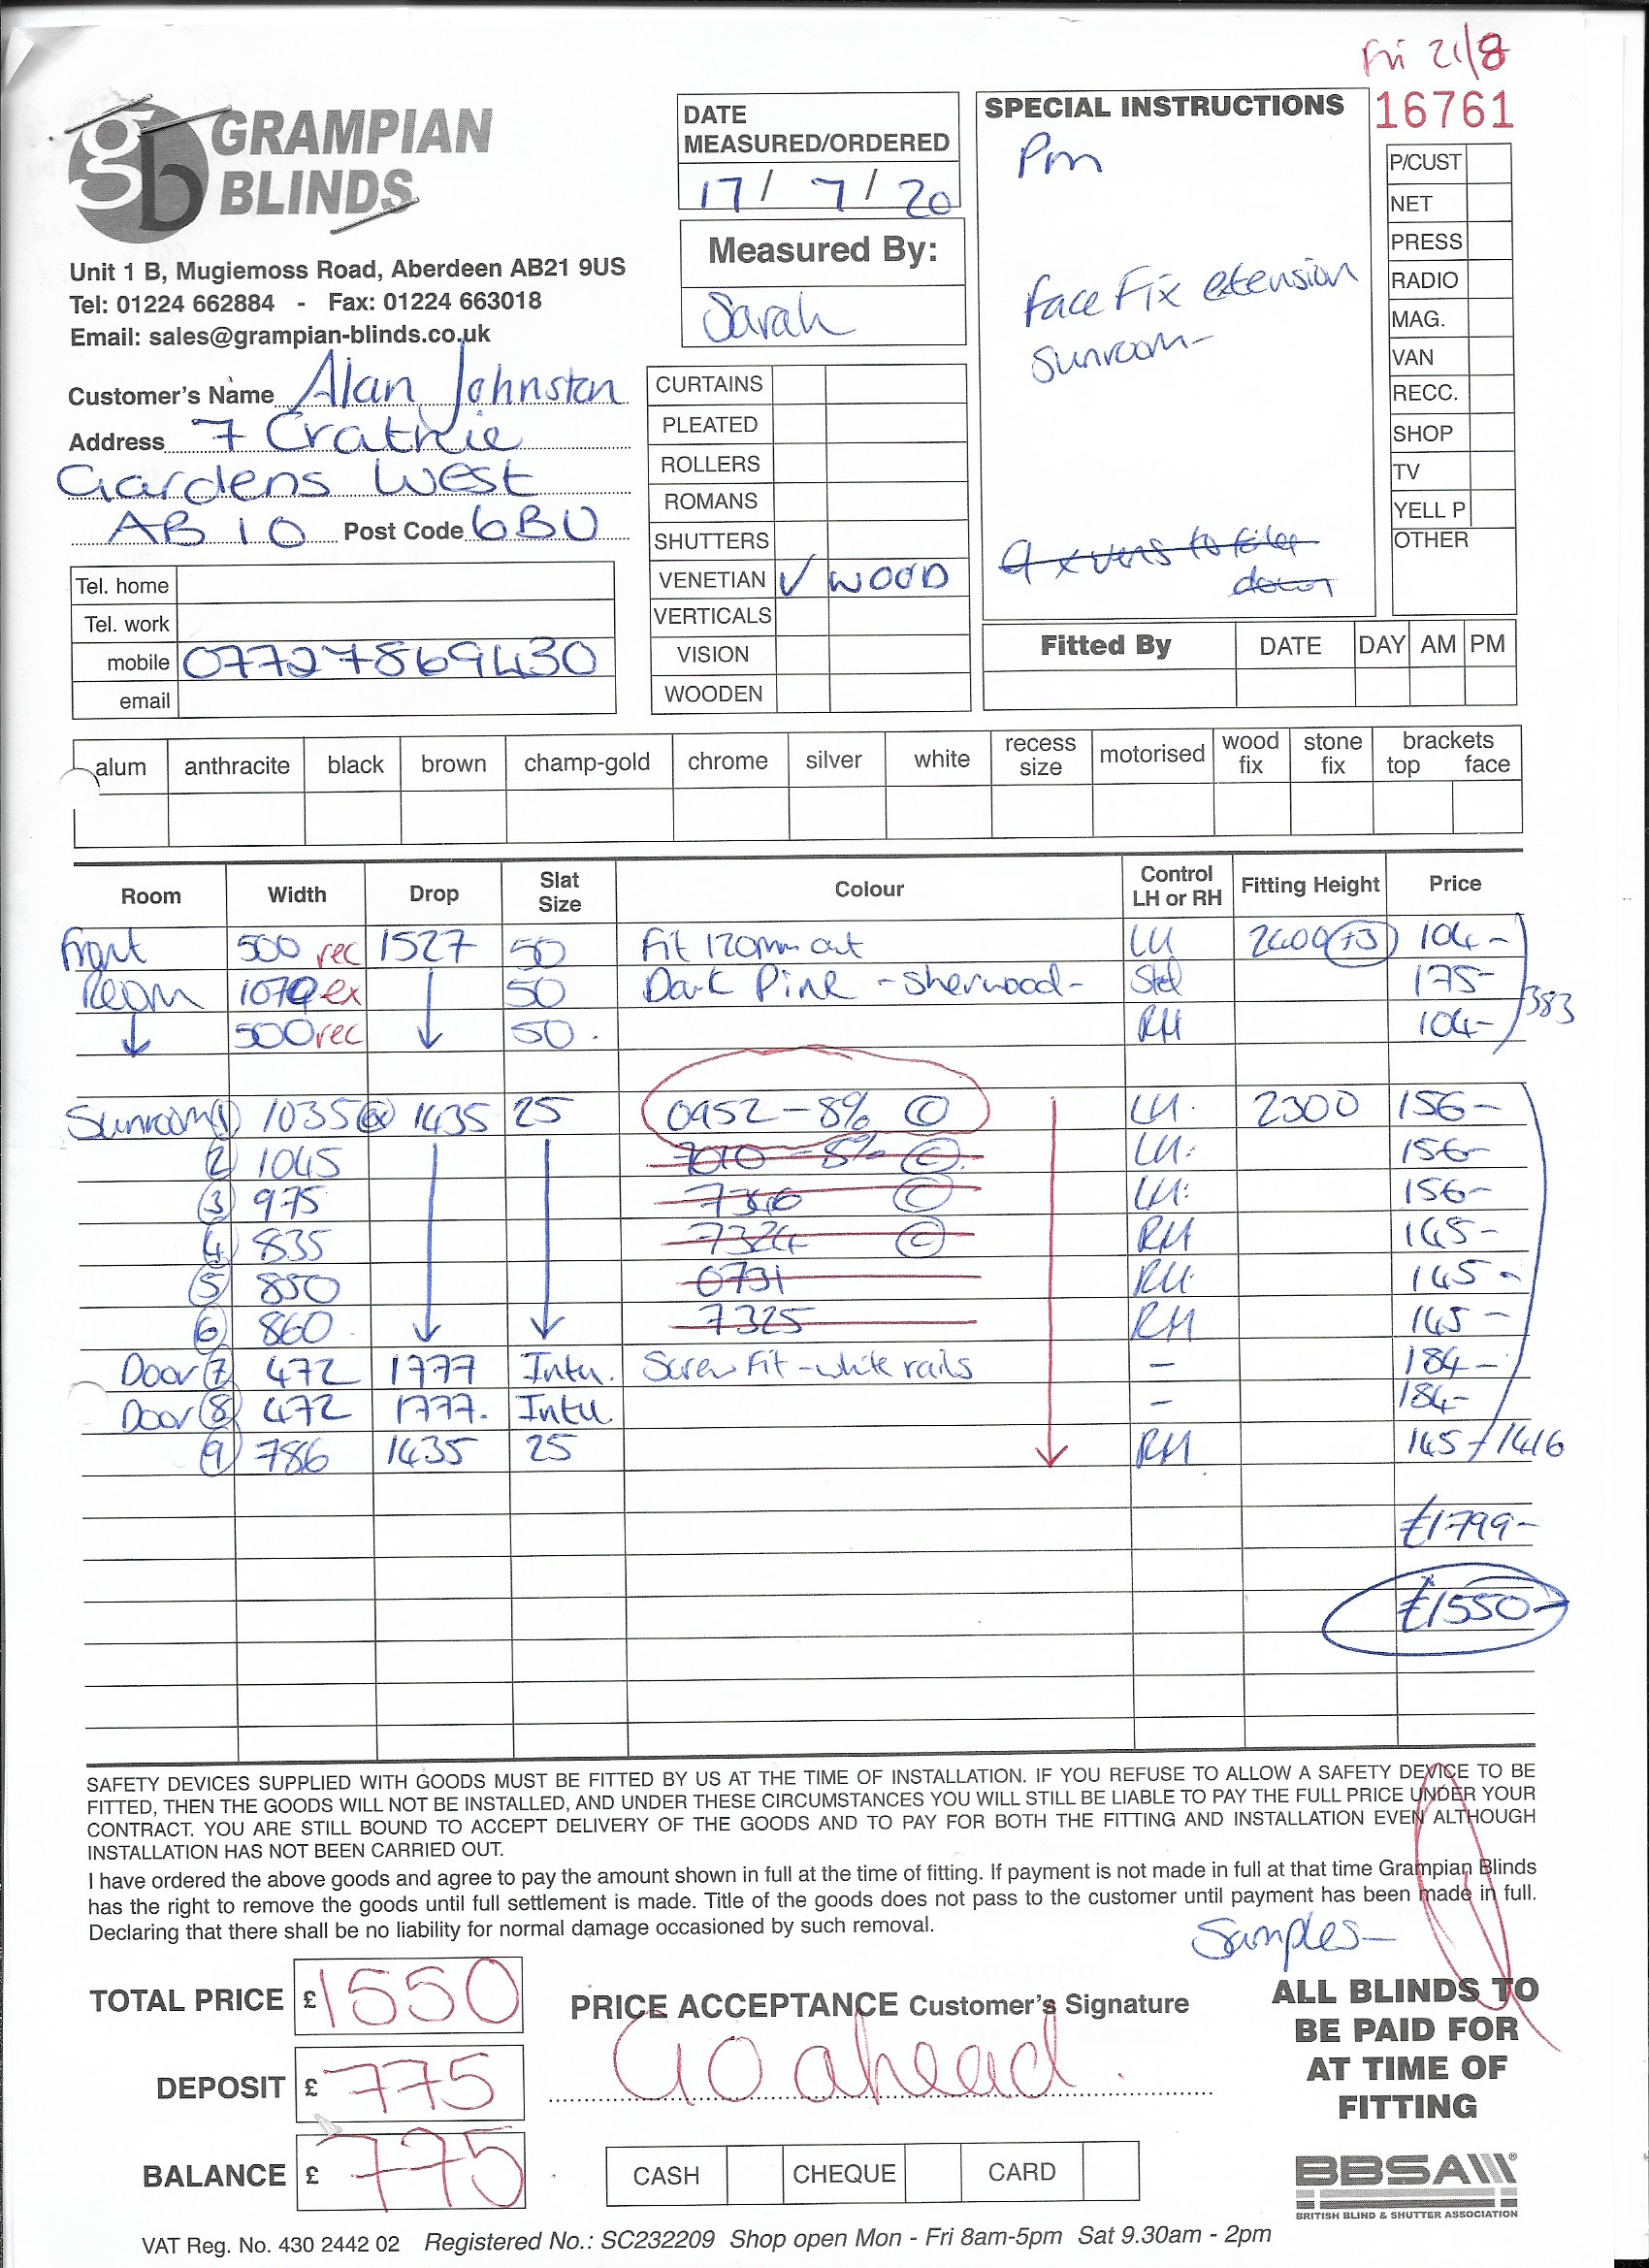 Fri 21/8
16761
GRAMPIAN
BLINDS
Unit 1 B, Mugiemoss Road, Aberdeen AB21 9US
Tel: 01224 662884 - Fax: 01224 663018
Email: sales@grampian-blinds.co.uk
Customer's Name Alan Johnston
Address 7 Crathie
Gardens West
AB10 Post Code 6BU
Tel. home
Tel. work
mobile 07727869430
email
DATE
MEASURED/ORDERED
17/7/20
Measured By:
Sarah
CURTAINS
PLEATED
ROLLERS
ROMANS
SHUTTERS
VENETIAN ✓ WOOD
VERTICALS
VISION
WOODEN
SPECIAL INSTRUCTIONS
Pm
Face Fix extension
sunroom-
9 x vens to
down
P/CUST
NET
PRESS
RADIO
MAG.
VAN
RECC.
SHOP
TV
YELL P
OTHER
Fitted By DATE DAY AM PM
alum anthracite black brown champ-gold chrome silver white recess size motorised wood fix stone fix brackets top face
Room Width Drop Slat Size Colour Control LH or RH Fitting Height Price
Front 500 rec 1527 50 Fit 120mm out LH 2400 +3 104-
Room 1070 ex 50 Dark Pine - Sherwood- Std 175-
500 rec 50. RH 104- 383
Sunroom 1 1035 ex 1435 25 0952 - 8% © LH. 2300 156-
2 1045 7010 - 8% © LH. 156-
3 975 7310 © LH. 156-
4 835 7324 © RH 145-
5 850 0731 RH. 145-
6 860 7325 RH 145-
Door 7 472 1777 Intu. Screw Fit - white rails - 184-
Door 8 472 1777. Intu. - 184-
9 786 1435 25 RH 145- 1416
£1799-
£1550-
SAFETY DEVICES SUPPLIED WITH GOODS MUST BE FITTED BY US AT THE TIME OF INSTALLATION. IF YOU REFUSE TO ALLOW A SAFETY DEVICE TO BE
FITTED, THEN THE GOODS WILL NOT BE INSTALLED, AND UNDER THESE CIRCUMSTANCES YOU WILL STILL BE LIABLE TO PAY THE FULL PRICE UNDER YOUR
CONTRACT. YOU ARE STILL BOUND TO ACCEPT DELIVERY OF THE GOODS AND TO PAY FOR BOTH THE FITTING AND INSTALLATION EVEN ALTHOUGH
INSTALLATION HAS NOT BEEN CARRIED OUT.
I have ordered the above goods and agree to pay the amount shown in full at the time of fitting. If payment is not made in full at that time Grampian Blinds
has the right to remove the goods until full settlement is made. Title of the goods does not pass to the customer until payment has been made in full.
Declaring that there shall be no liability for normal damage occasioned by such removal.
Samples-
TOTAL PRICE £1550
DEPOSIT £775
BALANCE £775
PRICE ACCEPTANCE Customer's Signature
Go ahead.
CASH CHEQUE CARD
ALL BLINDS TO
BE PAID FOR
AT TIME OF
FITTING
BBSA
BRITISH BLIND & SHUTTER ASSOCIATION
VAT Reg. No. 430 2442 02 Registered No.: SC232209 Shop open Mon - Fri 8am-5pm Sat 9.30am - 2pm